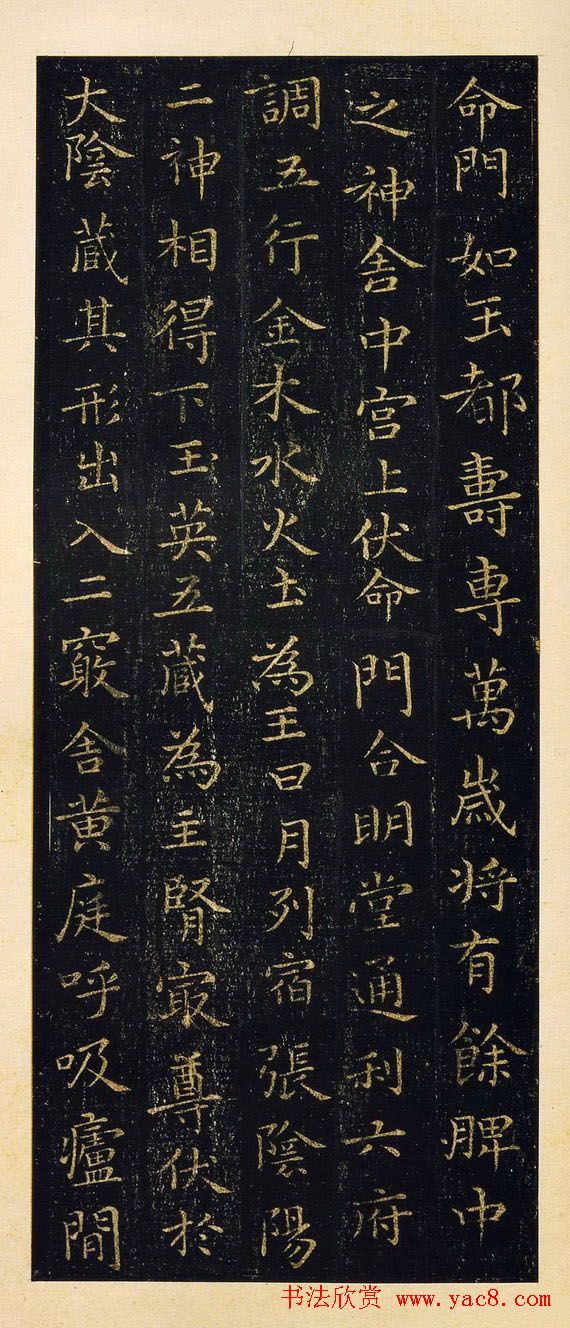 命門如玉都壽專萬歲将有餘脾中
之神舍中宫上伏命門合明堂通利六府
調五行金木水火土為王日月列宿張陰陽
二神相得下玉英五藏為主腎㝡尊伏於
大陰藏其形出入二竅舍黄庭呼吸廬間
书法欣赏 www.yac8.com